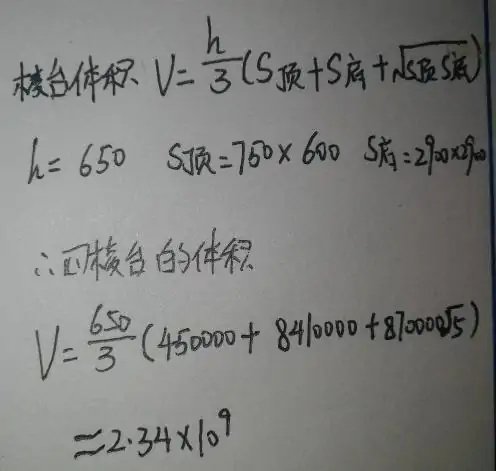 棱台体积 V=h/3(S顶+S底+√S顶S底)
h=650 S顶=750×600 S底=2900×2900
∴四棱台的体积
V=650/3(450000+8410000+870000√5)
≈2.34×10⁹